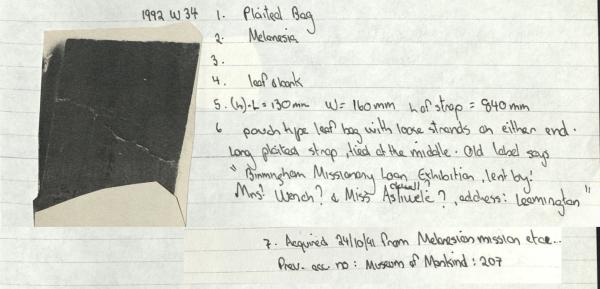 1992 W 34 1. Plaited Bag
2. Melanesia
3.
4. leaf & bark
5. (h). L = 130mm W = 160mm h of strap = 840mm
6 pouch type leaf bag with loose strands on either end.
Long plaited strap, tied at the middle. Old label says
"Birmingham Missionary Loan Exhibition, lent by:
Mrs? Wench? & Miss ?, address: Leamington"
7. Acquired 24/10/41 from Melanesian mission etc...
Prev. acc. no: Museum of Mankind: 207